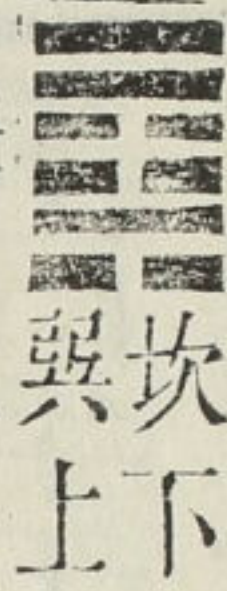 坎下
巽上